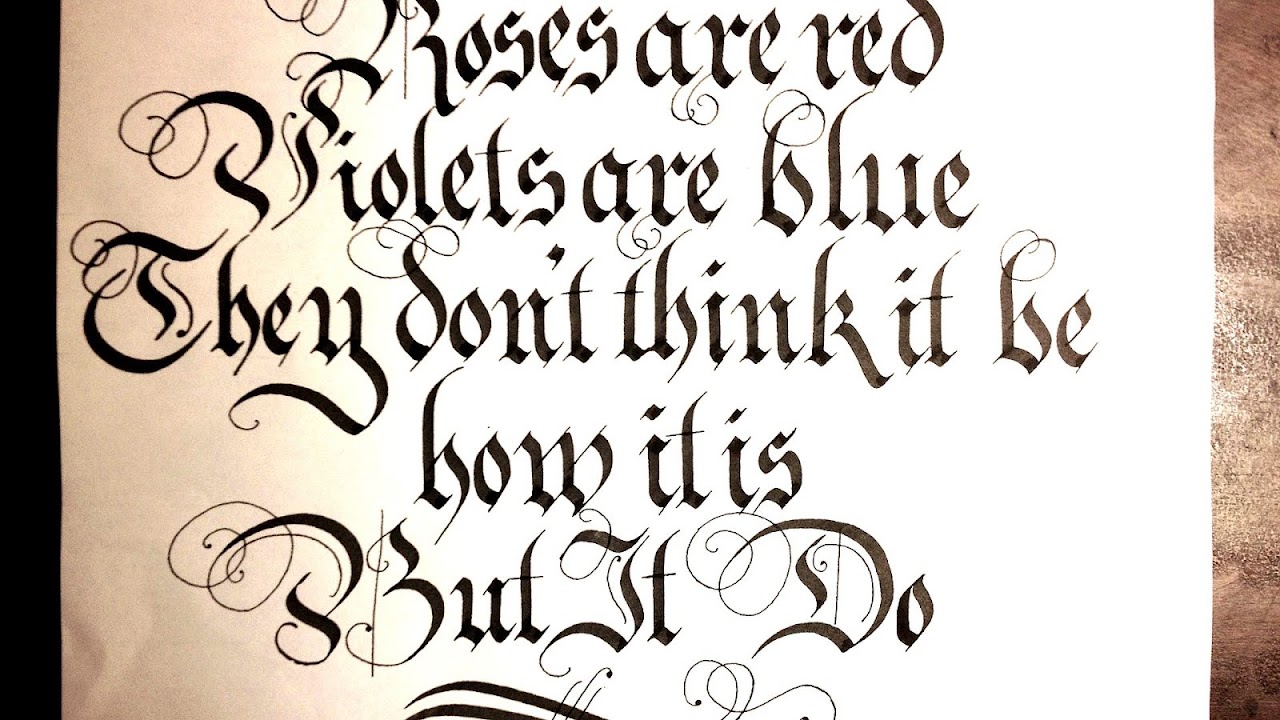 Roses are red
Violets are blue
They don't think it be
how it is
But It Do